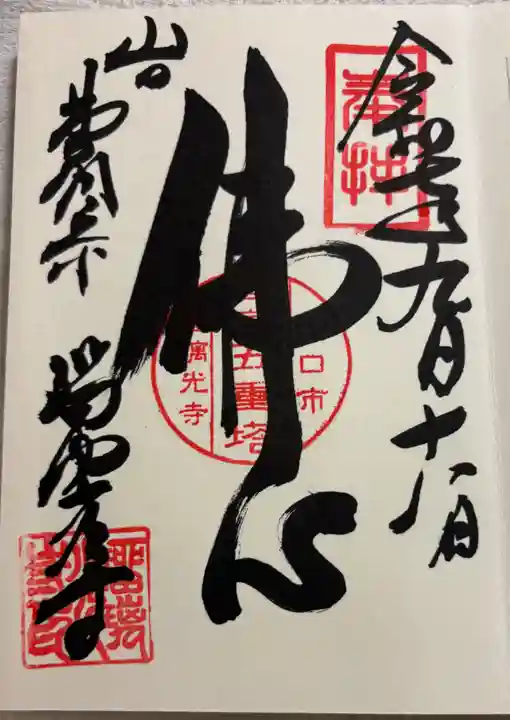 奉拝
令和元年九月十八日
佛心
山口市
国宝五重塔
瑠璃光寺
山口
曹洞宗
瑠璃光寺